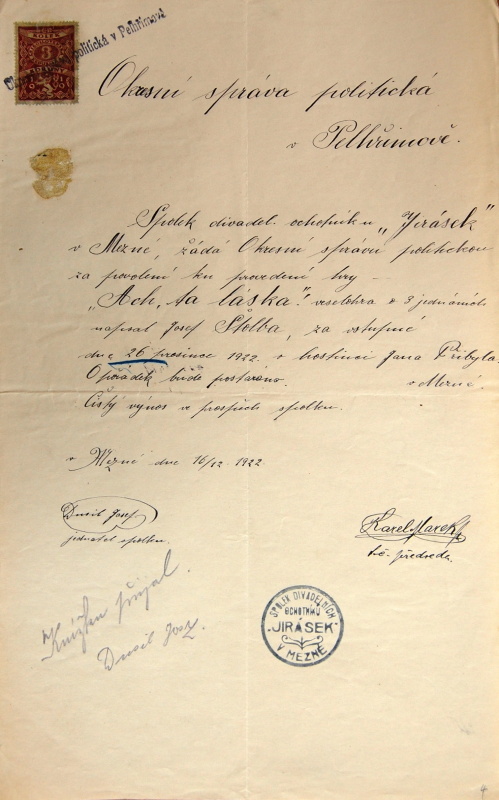 Okresní správa politická v Pelhřimově
3
Okresní správa politická
v Pelhřimově.
Spolek divadel. ochotníků „Jirásek"
v Mezné, žádá Okresní správu politickou
za povolení ku provedení hry
„Ach, ta láska". veselohra o 3 jednáních
napsal Josef Štolba, za vstupné
dne 26 prosince 1922 v hostinci Jana Přibyla
O pořádek bude postaráno. v Mezné.
Čistý výnos ve prospěch spolku.
v Mezné dne 16/12 1922
Dusil Josef
jednatel spolku
Karel Marek
t.č. předseda
Dusil Josef
přijal.
SPOLEK DIVADELNÍCH
OCHOTNÍKŮ
„JIRÁSEK"
V MEZNÉ
4